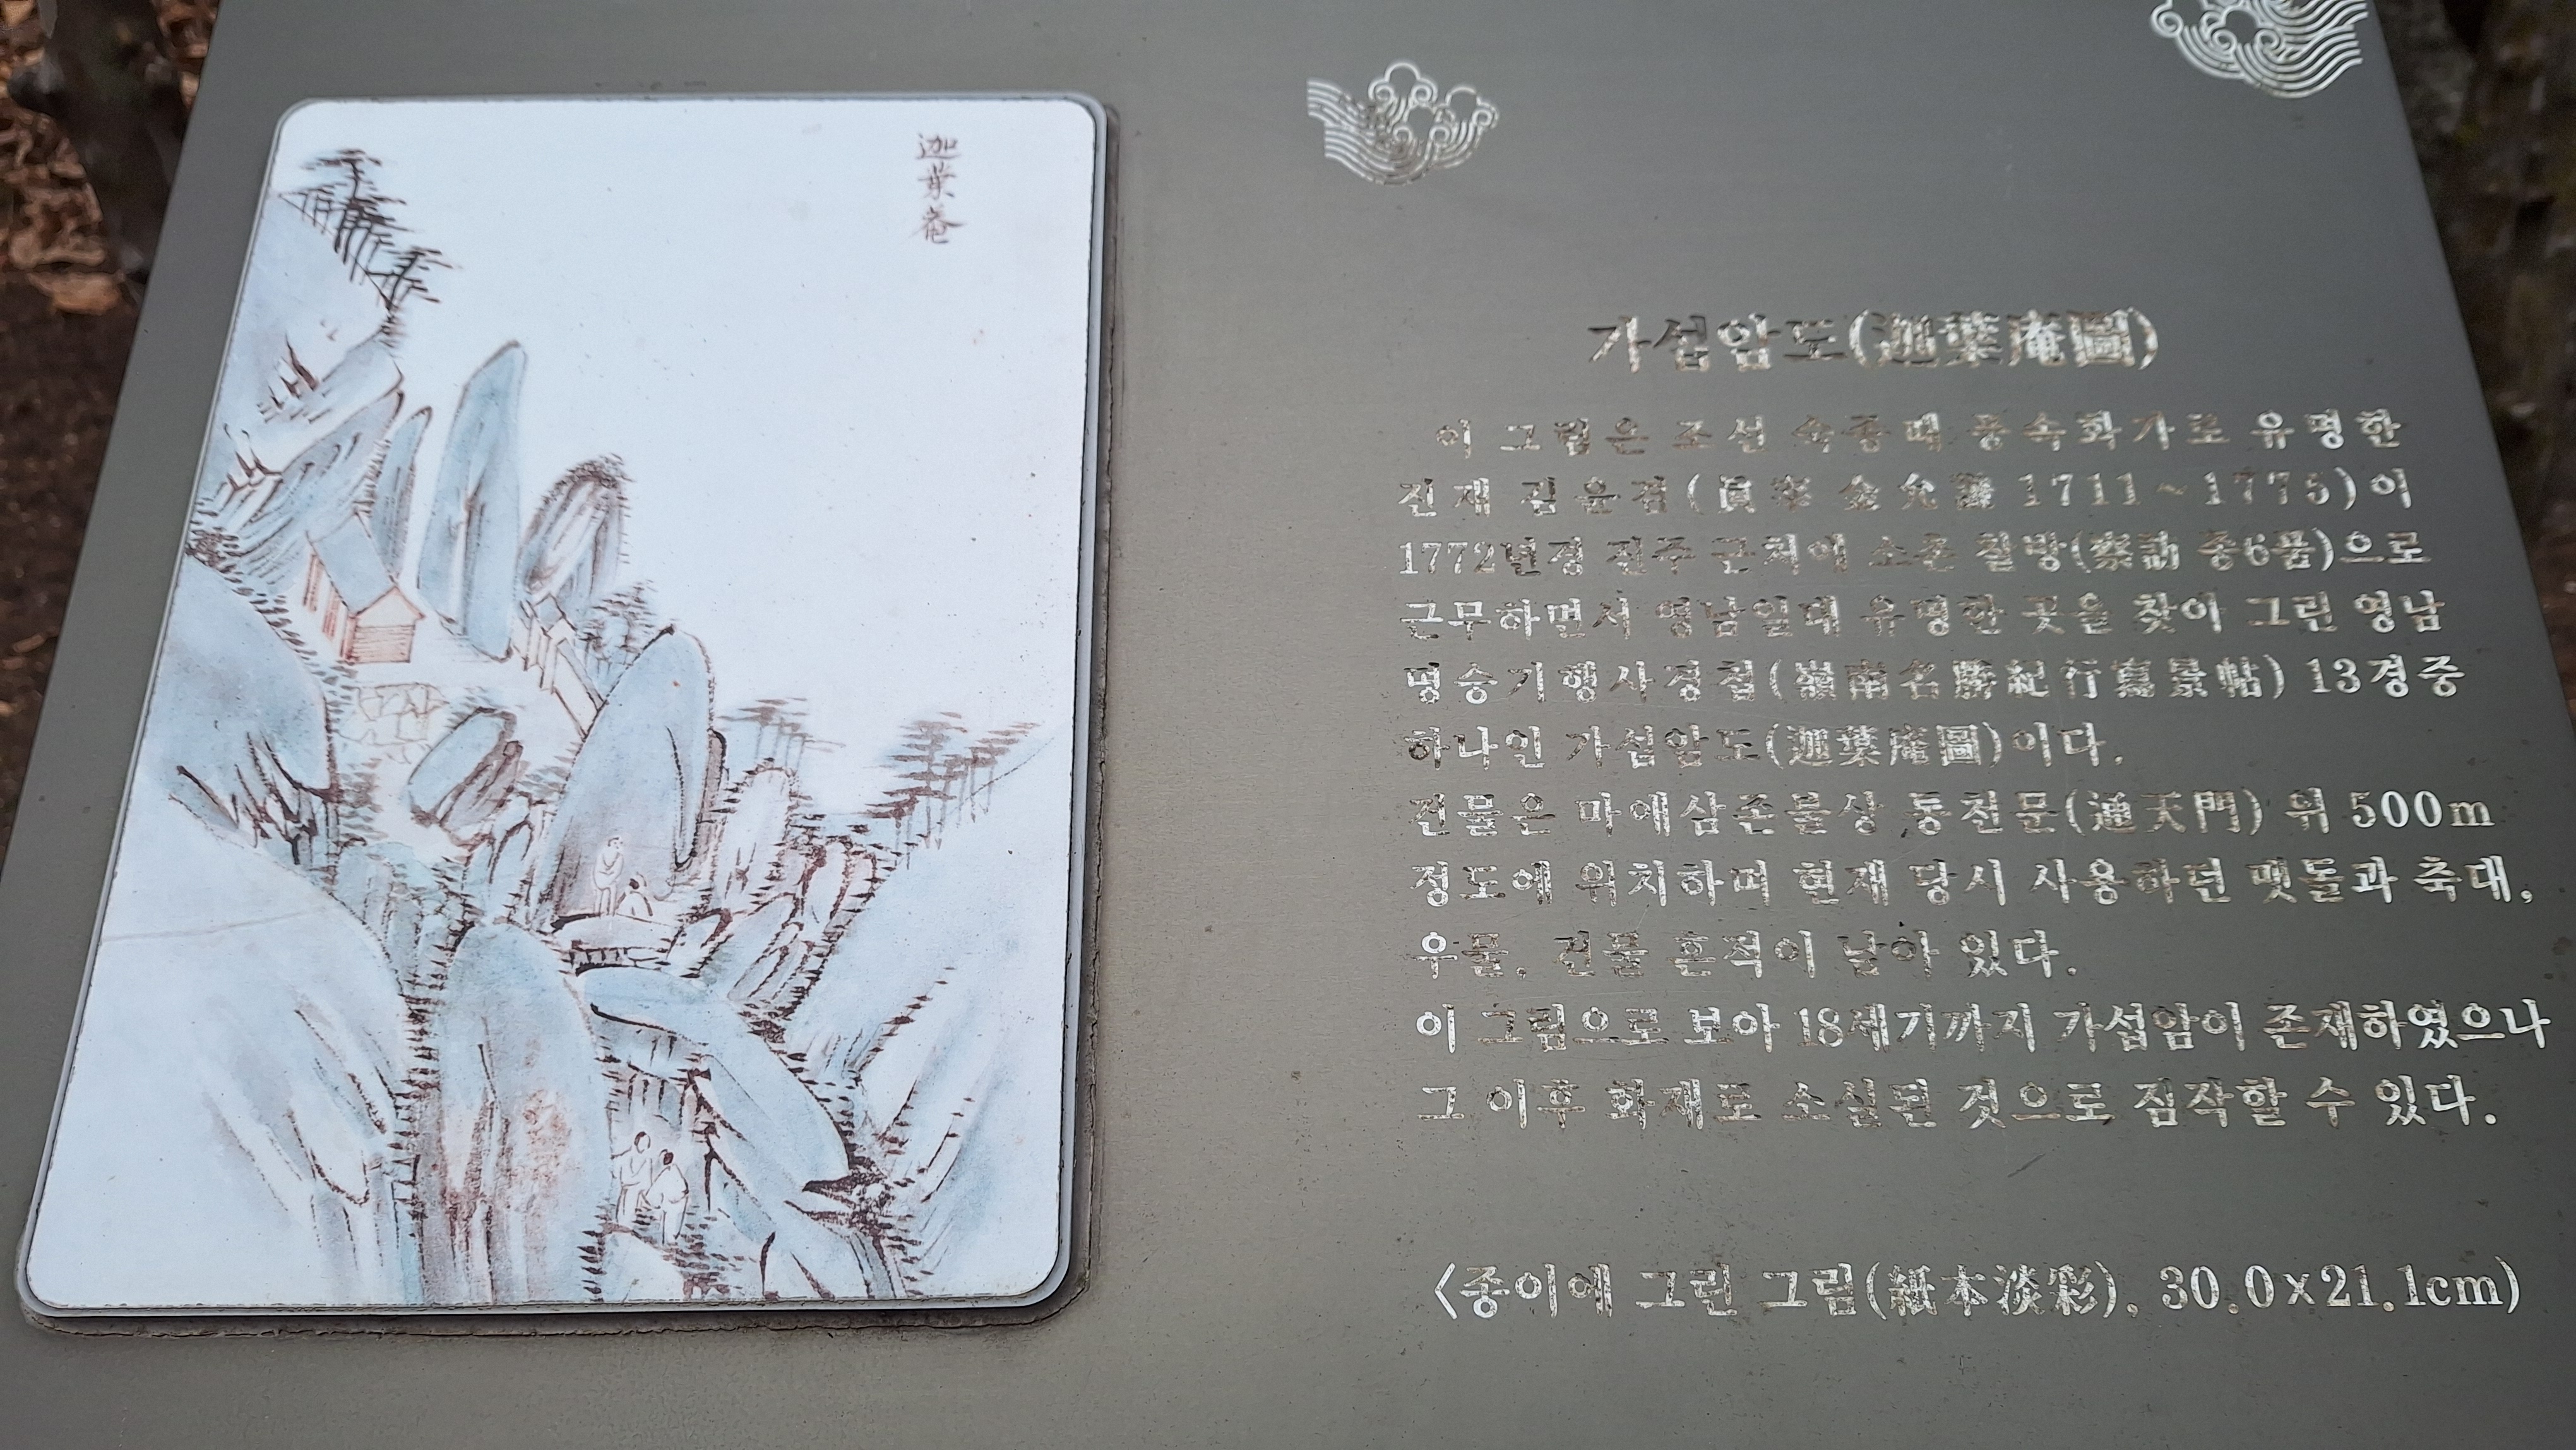 迦葉菴
가섭암도(迦葉庵圖)
이 그림은 조선 숙종때 풍속화가로 유명한
진재 김윤겸(眞宰 金允謙 1711~1775)이
1772년경 진주 근처에 소촌 찰방(察訪 종6품)으로
근무하면서 영남일대 유명한 곳을 찾아 그린 영남
명승기행사경첩(嶺南名勝紀行寫景帖) 13경중
하나인 가섭암도(迦葉庵圖)이다.
건물은 마애삼존불상 통천문(通天門) 위 500m
정도에 위치하며 현재 당시 사용하던 맷돌과 축대,
우물, 건물 흔적이 남아 있다.
이 그림으로 보아 18세기까지 가섭암이 존재하였으나
그 이후 화재로 소실된 것으로 짐작할 수 있다.
<종이에 그린 그림(紙本淡彩), 30.0x21.1cm)